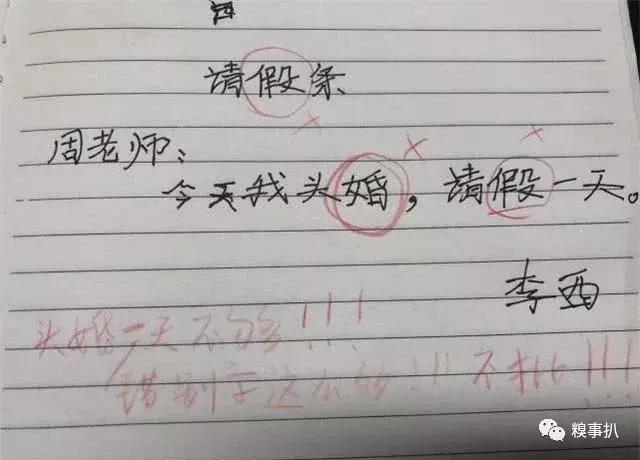 请假条
周老师:
今天我头婚,请假一天。
李西
头婚一天不够!!!
错别字这么多!!!不批!!!
糗事扒